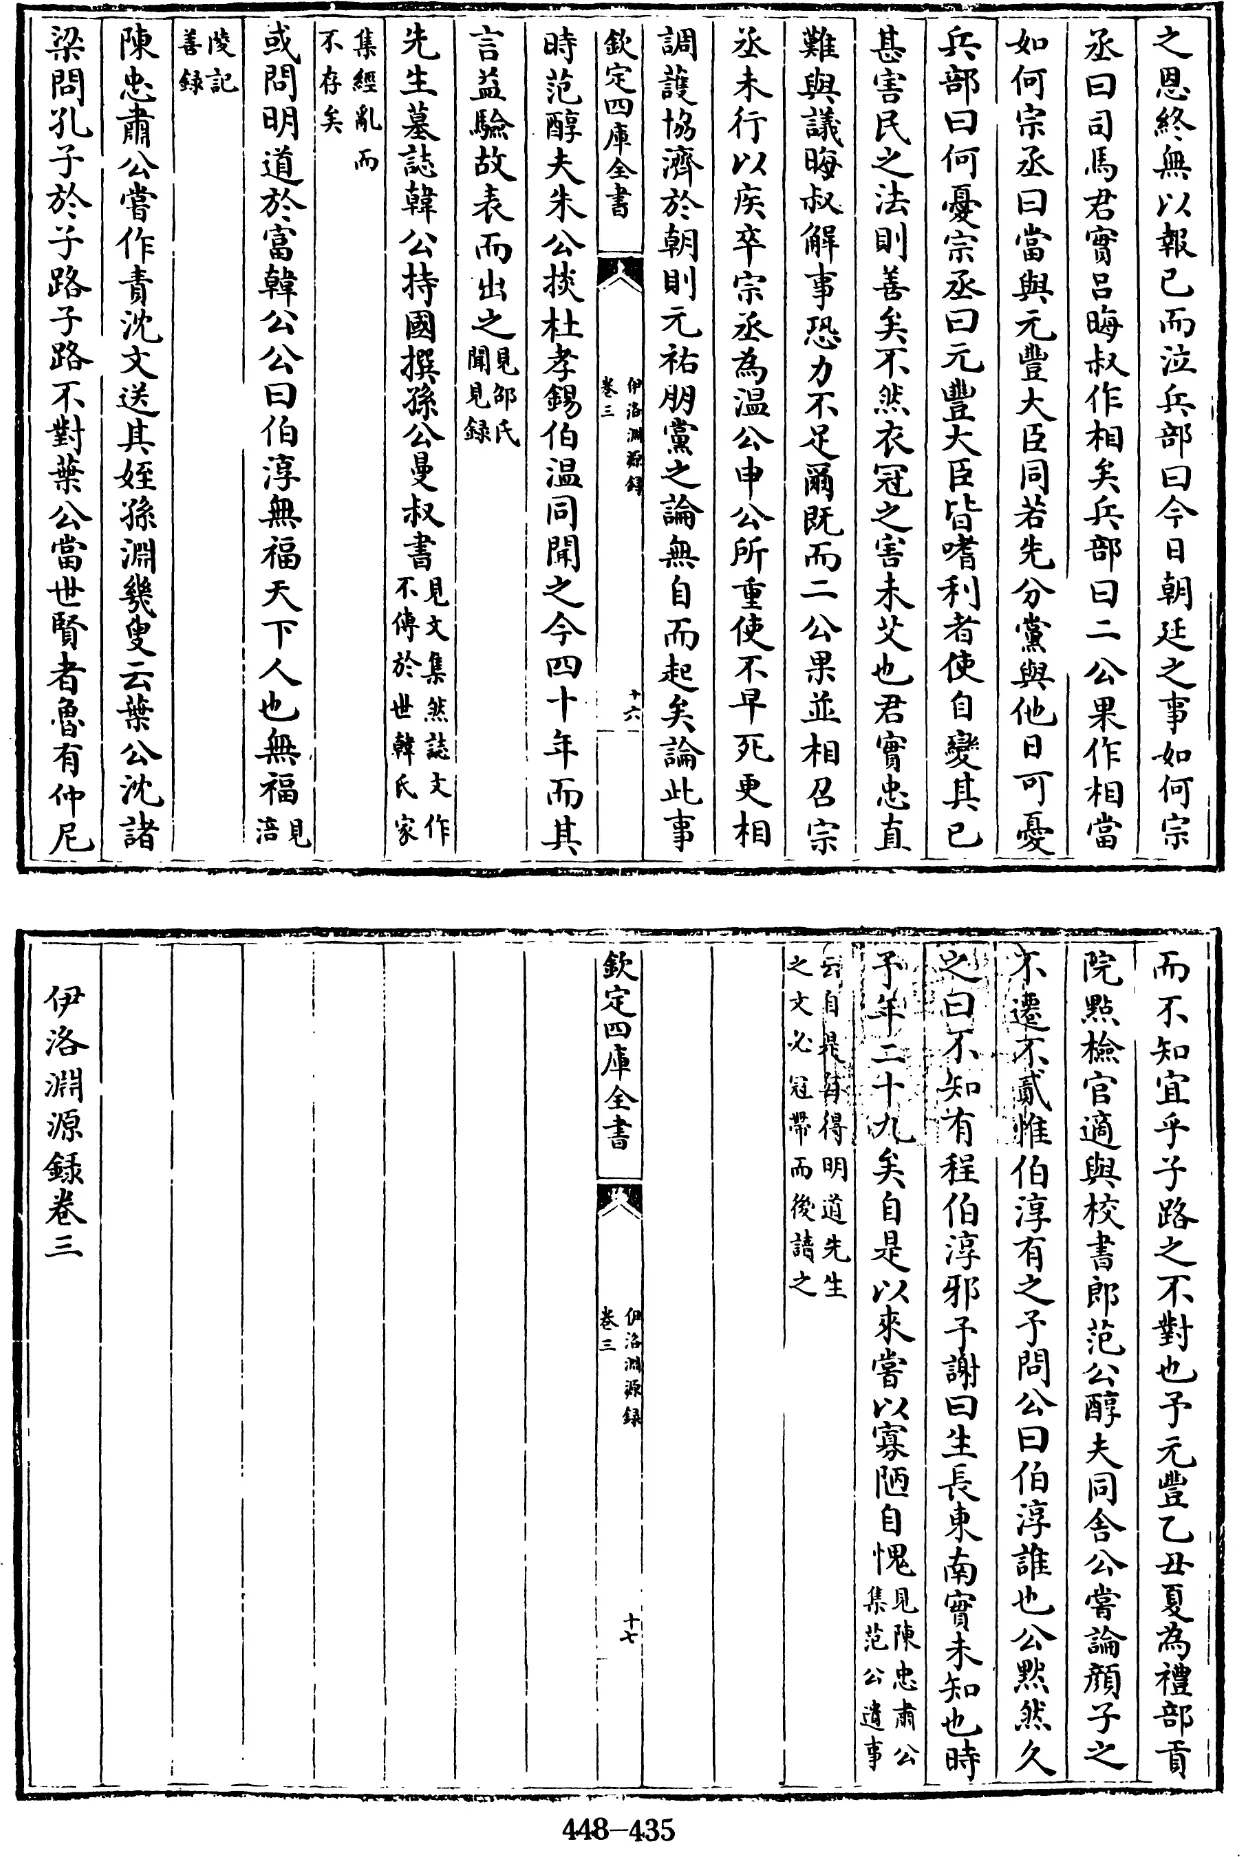 之恩終無以報已而泣兵部曰今日朝廷之事如何宗
丞曰司馬君實吕晦叔作相矣兵部曰二公果作相當
如何宗丞曰當與元豐大臣同若先分黨與他日可憂
兵部曰何憂宗丞曰元豐大臣皆嗜利者使自變其已
甚害民之法則善矣不然衣冠之害未艾也君實忠直
難與議晦叔解事恐力不足爾既而二公果並相召宗
丞未行以疾卒宗丞為温公申公所重使不早死更相
調護協濟於朝則元祐朋黨之論無自而起矣論此事
欽定四庫全書
伊洛淵源録
卷三
十六
時范醇夫朱公掞杜孝錫伯温同聞之今四十年而其
言益驗故表而出之見邵氏
聞見録
先生墓誌韓公持國撰孫公曼叔書見文集然誌文作
不傳於世韓氏家
集經亂而
不存矣
或問明道於富韓公公曰伯淳無福天下人也無福見
涪
陵記
善録
陳忠肅公嘗作責沈文送其姪孫淵幾叟云葉公沈諸
梁問孔子於子路子路不對葉公當世賢者魯有仲尼
而不知宜乎子路之不對也予元豐乙丑夏為禮部貢
院點檢官適與校書郎范公醇夫同舍公嘗論顏子之
不遷不貳惟伯淳有之予問公曰伯淳誰也公默然久
之曰不知有程伯淳邪予謝曰生長東南實未知也時
予年二十九矣自是以來嘗以寡陋自愧見陳忠肅公
集范公遺事
云自是每得明道先生
之文必冠帶而後讀之
欽定四庫全書
伊洛淵源録
卷三
十七
伊洛淵源録卷三
448-435